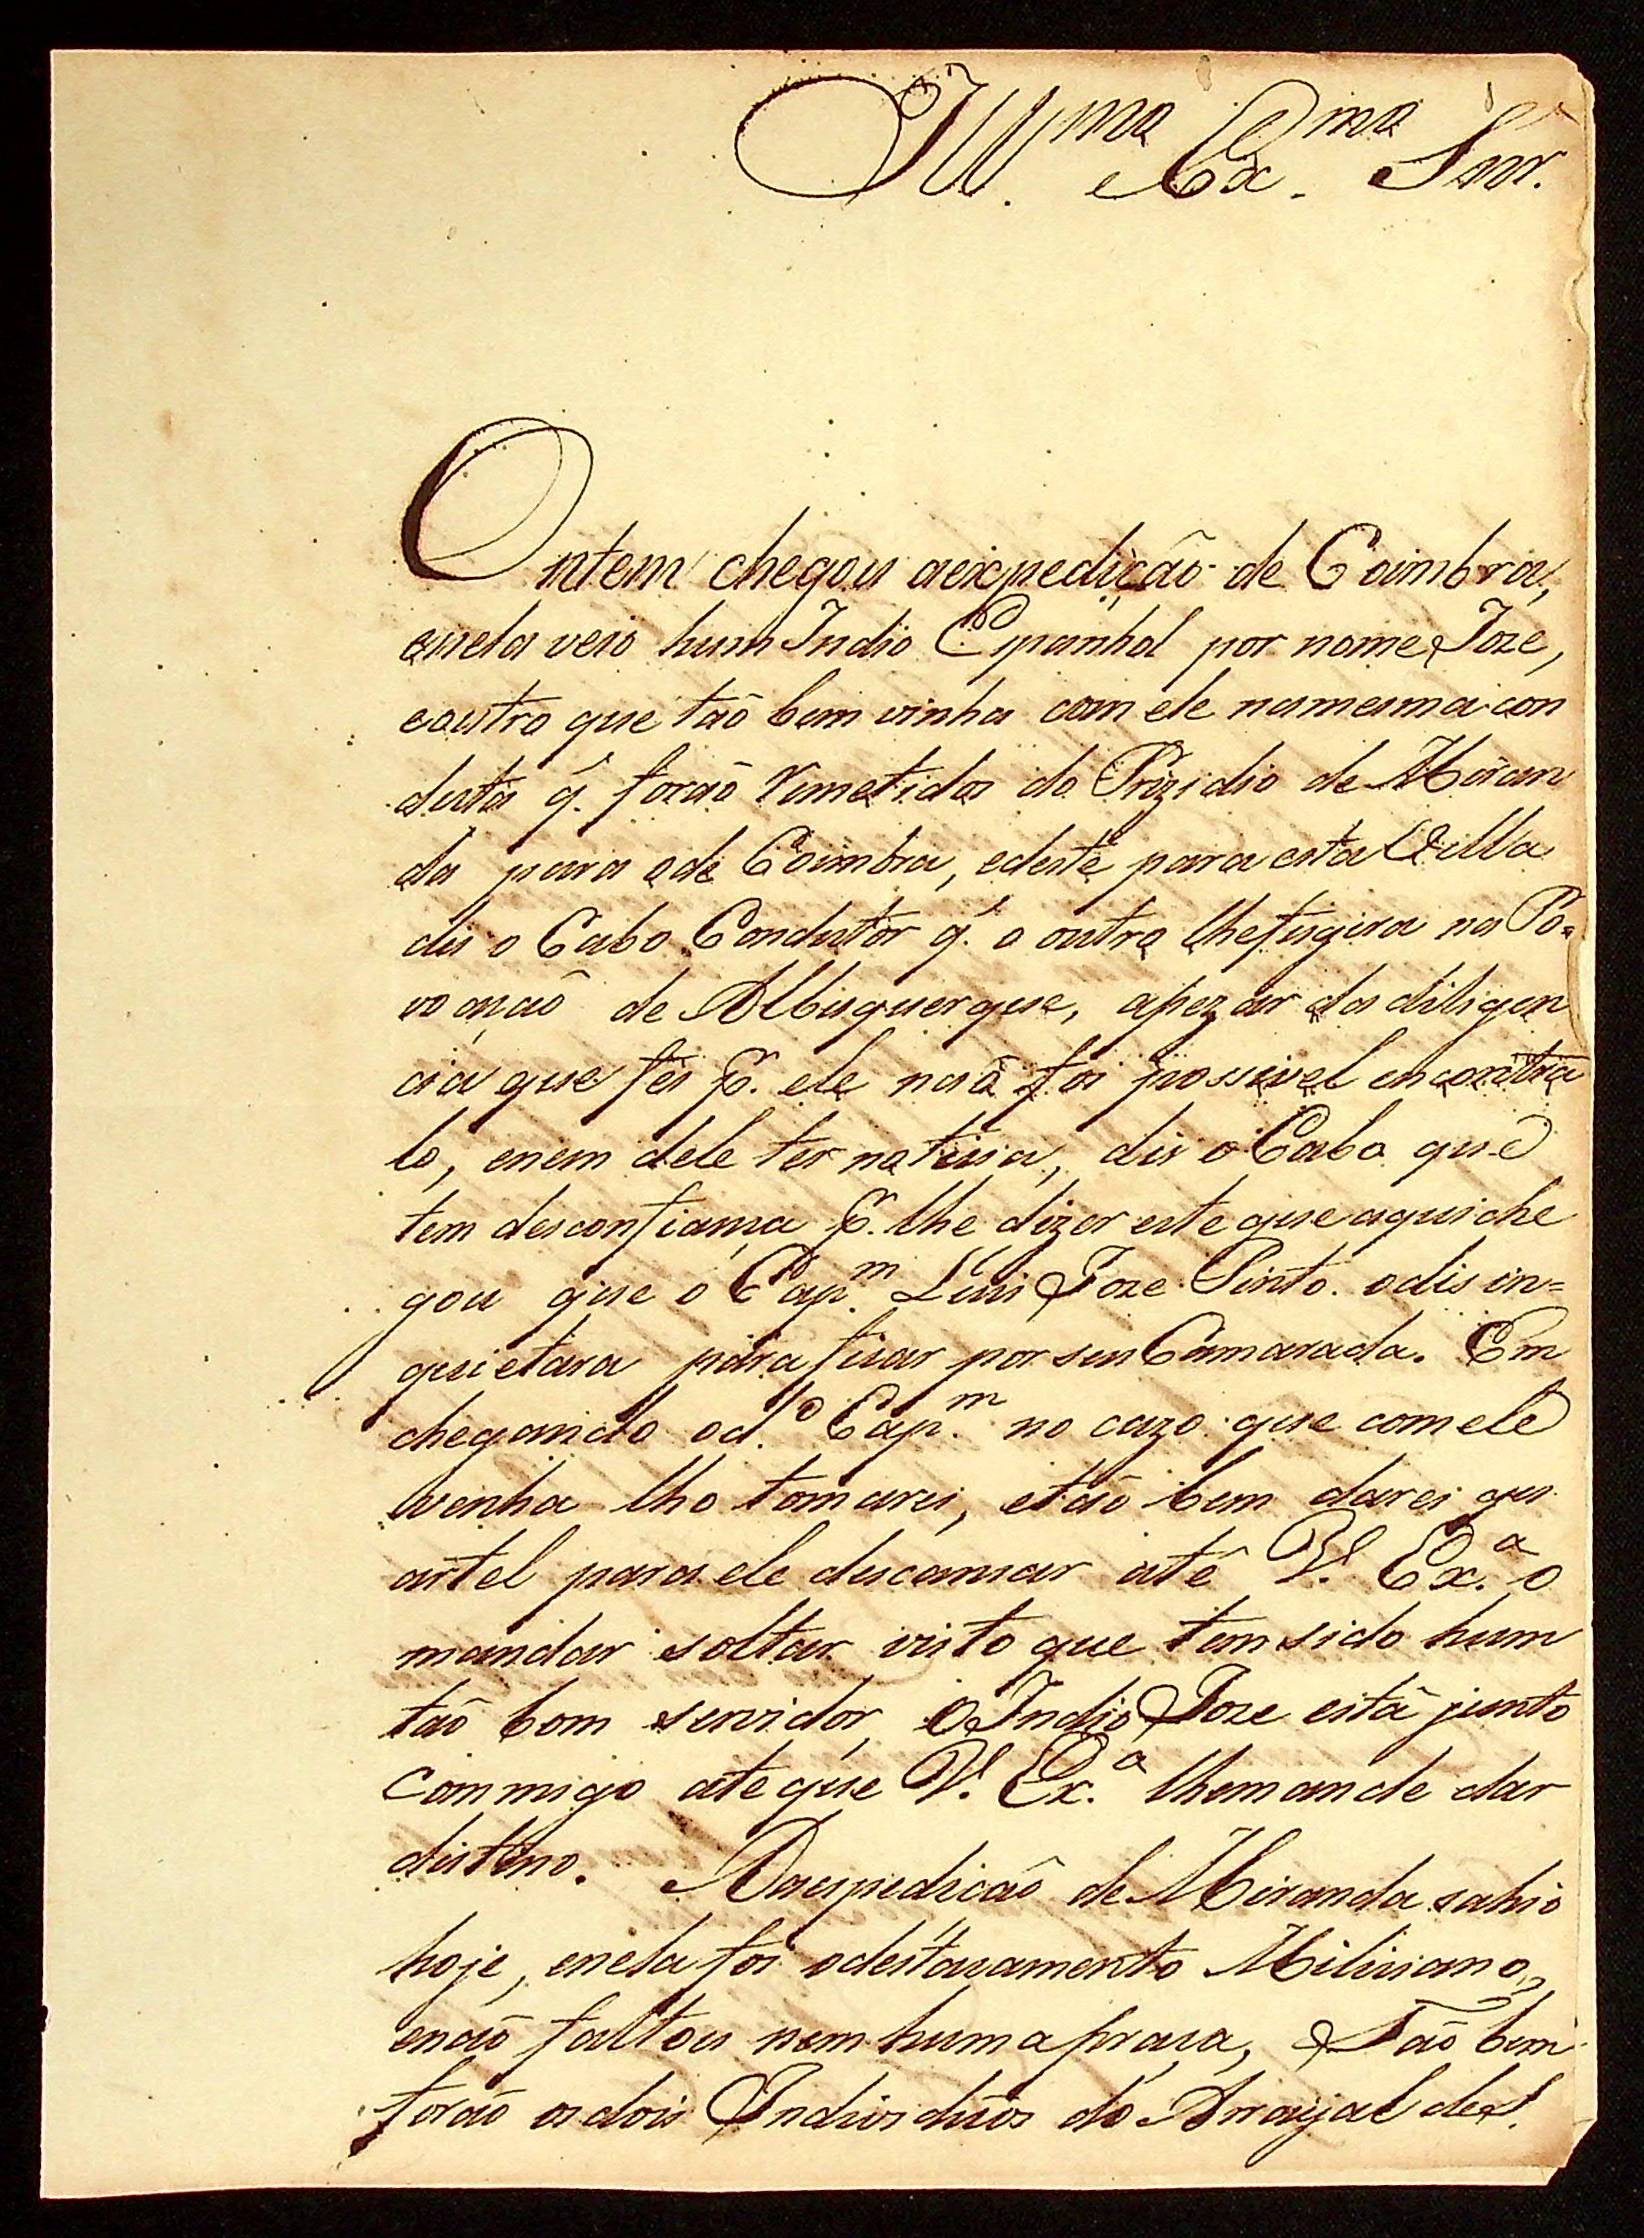 Ill.mo Ex.mo Snr.
Ontem chegou aexpedição de Coimbra,
enela veio hum Indio Espanhol por nome Joze,
eoutro que tão bem vinha com ele namesma con
duta q̃. forão Remetidos do Prizidio de Miran
da para ode Coimbra, edeste para esta Villa
dis o Cabo Condutor q̃. o outro lhefugira na Po=
voação de Albuquerque, apezar da diligen
cia que fes p̃. ele não foi possivel encontra
lo, enem dele ter noticia, dis o Cabo que
tem desconfiança p̃. lhe dizer este que aqui che
gou que o Cap.m Luis Joze Pinto odis in=
quietara para ficar por seu Camarada. Em
chegando od.o Cap.m no cazo que com ele
venha lho tomarei, etão bem darei qu
artel para ele descansar até V. Ex.a o
mandar soltar visto que tem sido hum
tão bom servidor, o Indio Joze está junto
commigo ate que V. Ex.a lhemande dar
distino. Aaexpedicão de Miranda sahio
hoje, enela foi odestacamento Miliciano,
enão faltou nem huma praça, Tão bem
forão os dois Individuos do Arrayal de S.